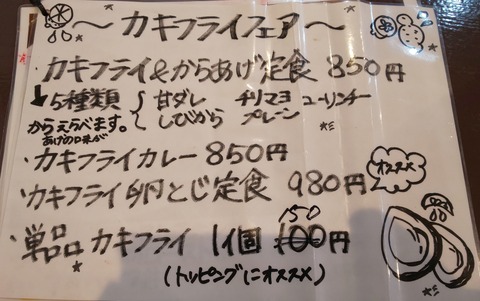 ～カキフライフェア～
・カキフライ&からあげ定食 850円
→5種類 甘ダレ チリマヨ ユーリンチー
からえらべます。 しびから プレーン
あげの味が
・カキフライカレー 850円
・カキフライ卵とじ定食 980円 オススメ
・単品 カキフライ 1個 100円 150
(トッピングにオススメ)